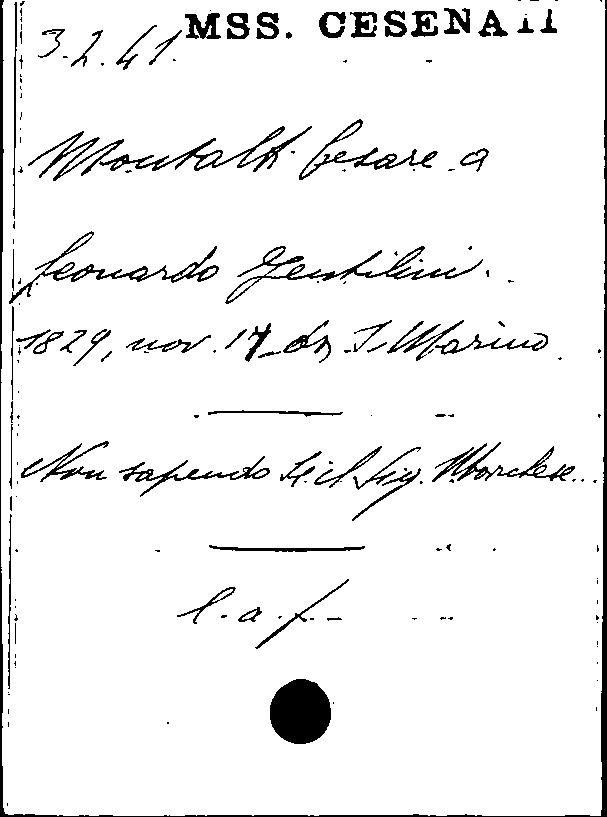 MSS. CESENATI
3.2.41.
Montalti Cesare a
Leonardo Gentilini.
1829, nov. 17 da S. Marino
Non sapendo se il Sig. Marchese...
l.a.f.